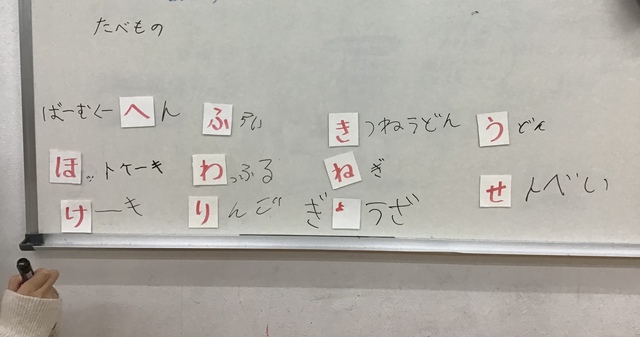 たべもの
ばーむくーへん ふらい きつねうどん うどん
ほットケーキ わっふる ねぎ せんべい
けーキ りんご ぎょうざ